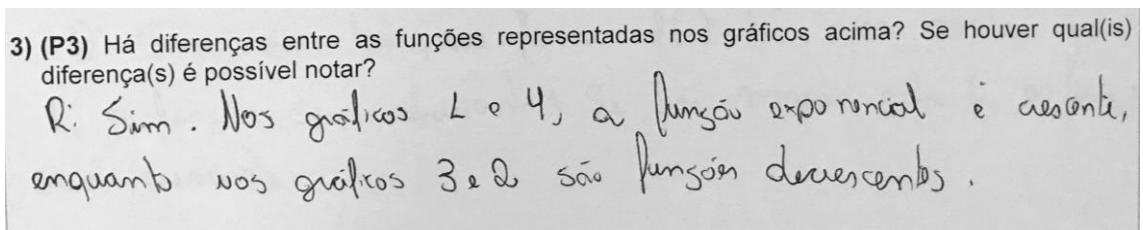 3) (P3) Há diferenças entre as funções representadas nos gráficos acima? Se houver qual(is)
diferença(s) é possível notar?
R: Sim. Nos gráficos 1 e 4, a função exponencial é crescente,
enquanto nos gráficos 3 e 2 são funções decrescentes.